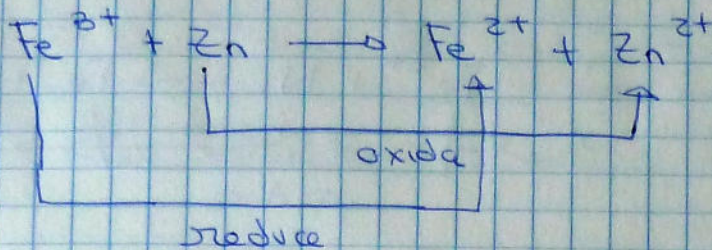 Fe³⁺ + Zn → Fe²⁺ + Zn²⁺
oxida
reduce